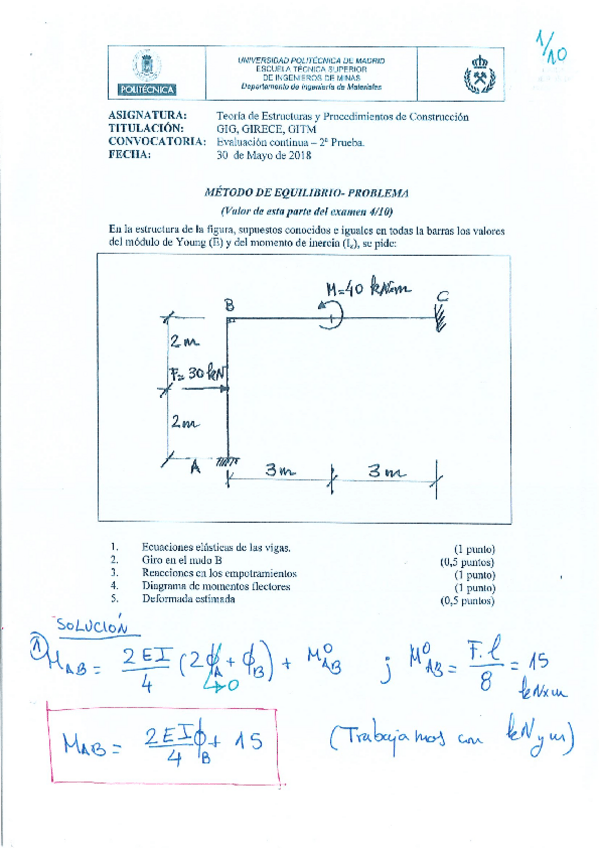 1/10
POLITÉCNICA
UNIVERSIDAD POLITÉCNICA DE MADRID
ESCUELA TÉCNICA SUPERIOR
DE INGENIEROS DE MINAS
Departamento de Ingeniería de Materiales
ASIGNATURA: Teoría de Estructuras y Procedimientos de Construcción
TITULACIÓN: GIG, GIRECE, GITM
CONVOCATORIA: Evaluación continua – 2ª Prueba.
FECHA: 30 de Mayo de 2018
MÉTODO DE EQUILIBRIO- PROBLEMA
(Valor de esta parte del examen 4/10)
En la estructura de la figura, supuestos conocidos e iguales en todas la barras los valores
del módulo de Young (E) y del momento de inercia (Iz), se pide:
M=40 kN×m
B
C
2m
F=30 kN
2m
A
3m
3m
1. Ecuaciones elásticas de las vigas. (1 punto)
2. Giro en el nudo B (0,5 puntos)
3. Reacciones en los empotramientos (1 punto)
4. Diagrama de momentos flectores (1 punto)
5. Deformada estimada (0,5 puntos)
SOLUCIÓN
1) M_AB = 2EI/4 (2ϕ_A + ϕ_B) + M⁰_AB ; M⁰_AB = F.l/8 = 15 kN×m
→0
M_AB = 2EI/4 ϕ_B + 15 (Trabajamos con kN y m)